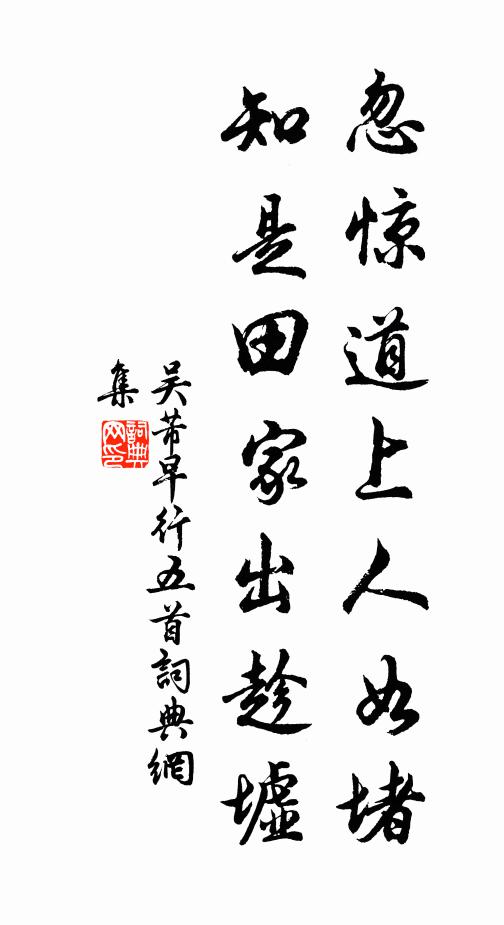 忽惊道上人如堵
知是田家出趁墟
吴芾早行五首詞典網
集
詞典
网印